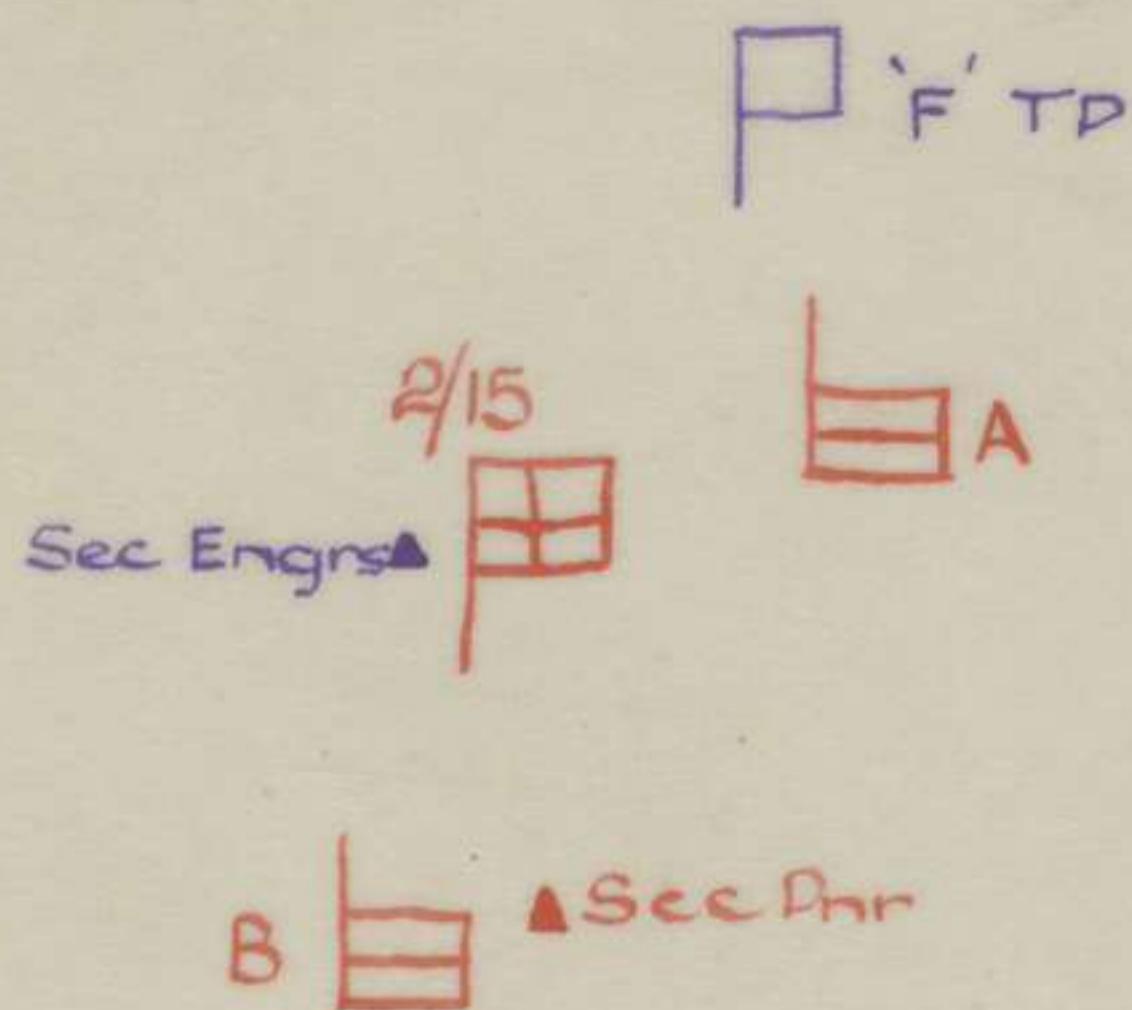 'F' TD
2/15
A
Sec Engrs
Sec Pnr
B